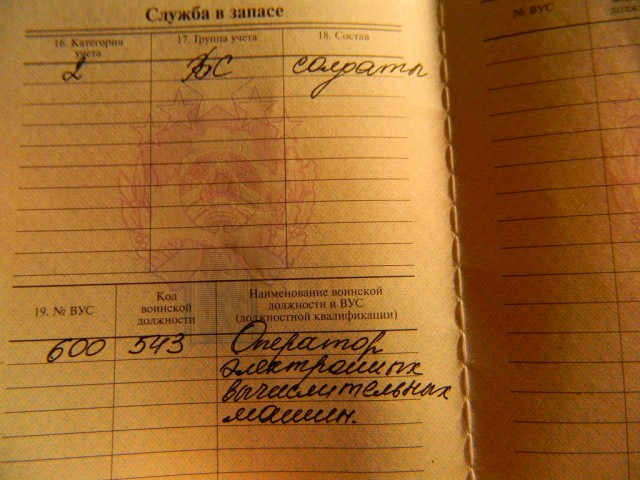 Служба в запасе
16. Категория
учета
17. Группа учета
18. Состав
2
ВС
солдаты
19. № ВУС
Код
воинской
должности
Наименование воинской
должности и ВУС
(должностной квалификации)
600
543
Оператор
электронных
вычислительных
машин.
№ ВУС